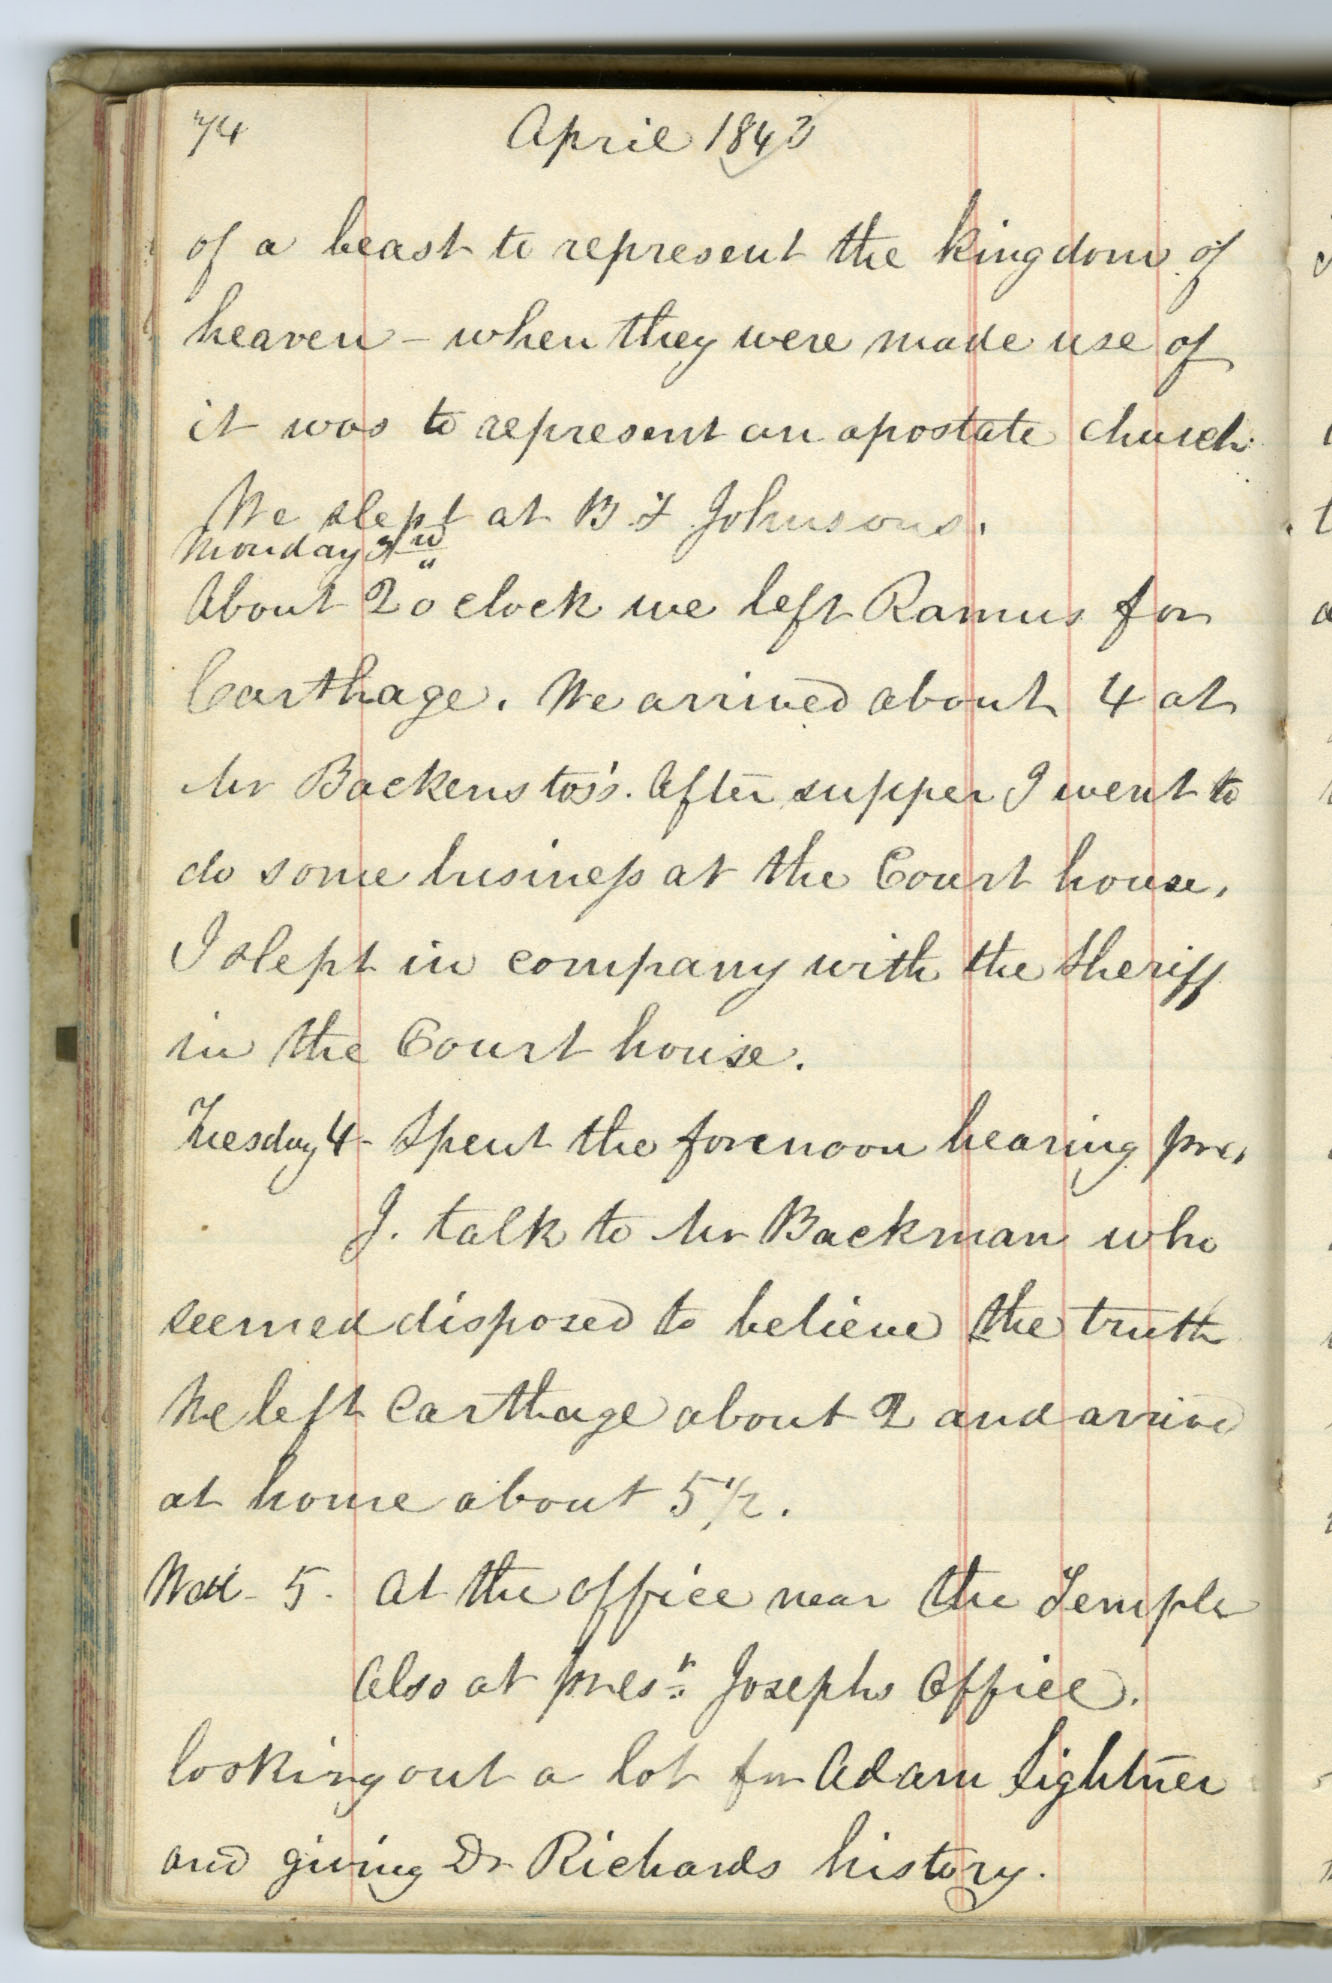 74 April 1843
of a beast to represent the kingdom of
heaven - when they were made use of
it was to represent an apostate church.
We slept at B F Johnsons.
Monday 3rd
About 2 o clock we left Ramus for
Carthage. We arrived about 4 at
Mr Backenstos's. After supper I went to
do some business at the Court house,
I slept in company with the Sheriff
in the Court house.
Tuesday 4 - Spent the forenoon hearing pres
J. talk to Mr Backman who
seemed disposed to believe the truth
We left Carthage about 2 and arrived
at home about 5 1/2.
Wed - 5. At the office near the Temple
Also at prest. Josephs Office.
looking out a lot for Adam Lightner
and giving Dr Richards history.